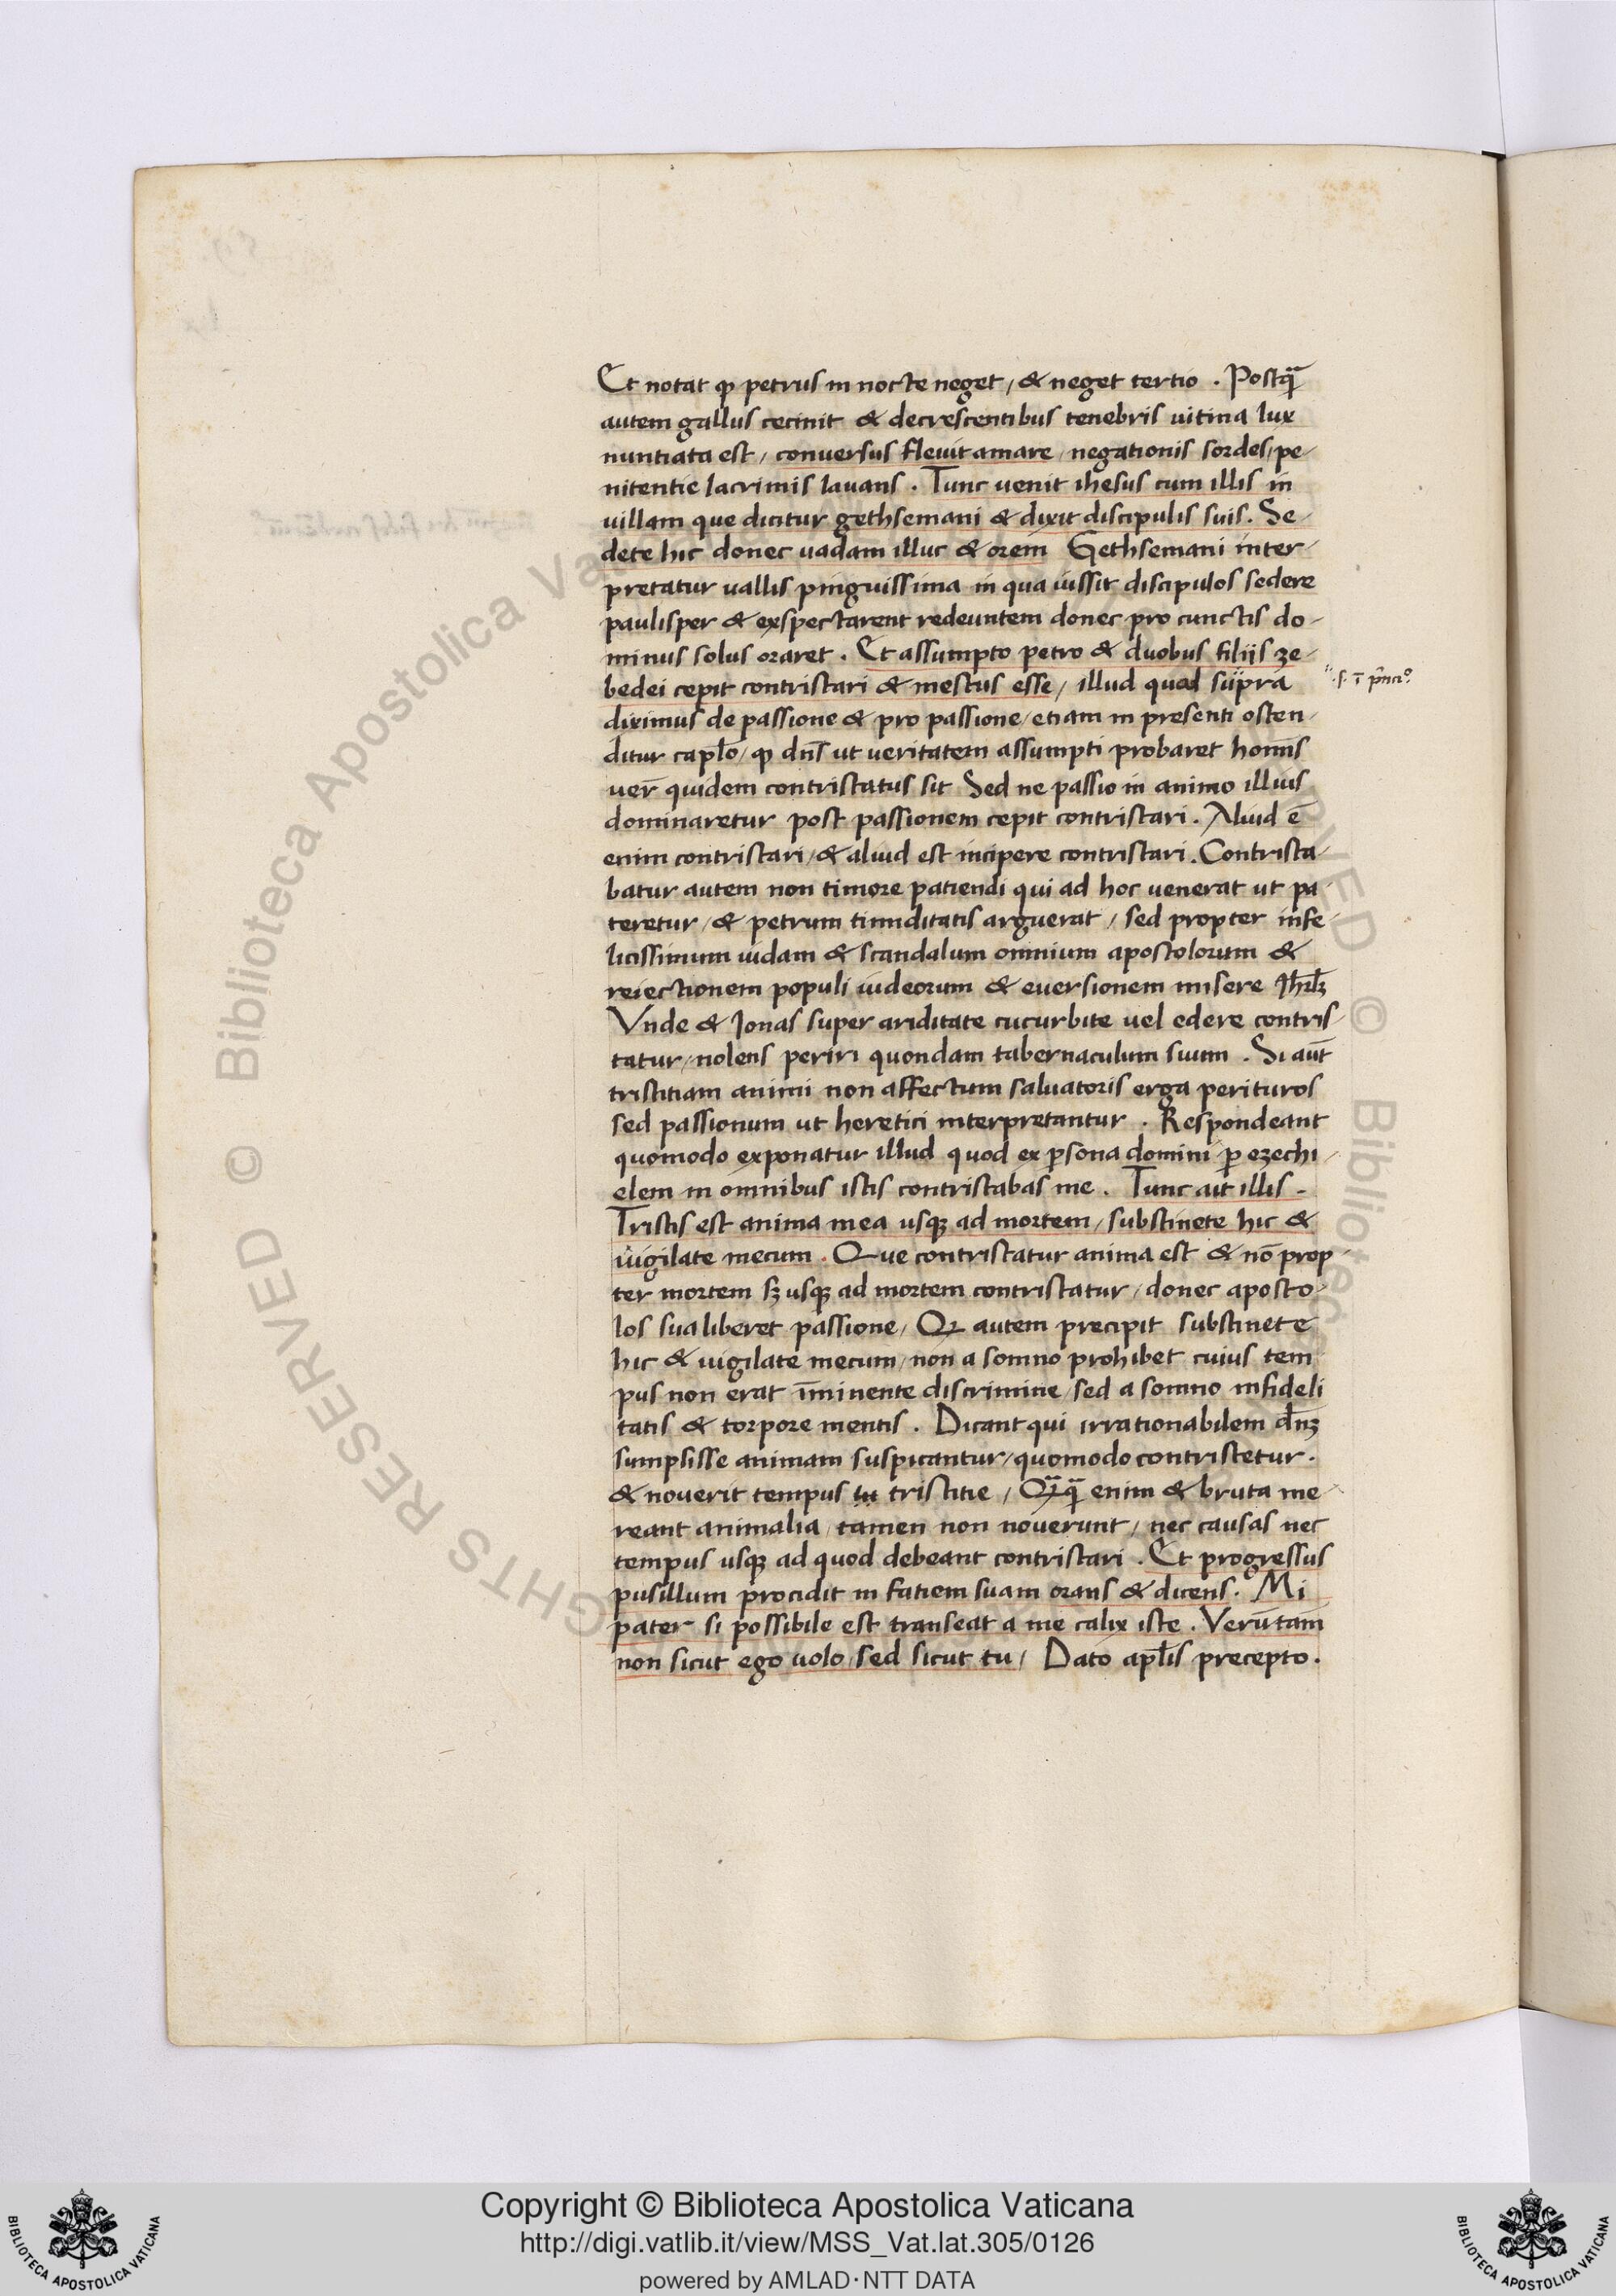 Et notat ꝙ petrus in nocte neget / & neget tertio . Postq̄
autem gallus cecinit & decrescentibus tenebris uitina lux
nuntiata est / conuersus fleuit amare / negationis sordes / pe-
nitentie lacrimis lauans . Tunc uenit ihesus cum illis in
uillam que dicitur gethsemani & dixit discipulis suis . Se-
dete hic donec uadam illuc & orem Gethsemani inter-
pretatur uallis pinguissima in qua iussit discipulos sedere
paulisper & exspectarent redeuntem donec pro cunctis do-
minus solus oraret . Et assumpto petro & duobus filijs ze-
bedei cepit contristari & mestus esse / illud quod supra
.s. ī pͥncio.
diximus de passione & pro passione / etiam in presenti osten-
ditur capl̄o / ꝙ dn̄s ut ueritatem assumpti probaret homīs
uer̄ quidem contristatus sit Sed ne passio in animo illius
dominaretur post passionem cepit contristari . Aliud ē
enim contristari / & aliud est incipere contristari . Contrista-
batur autem non timore patiendi qui ad hoc uenerat ut pa-
teretur / & petrum timiditatis arguerat / sed propter infe-
licissimum iudam & scandalum omnium apostolorum &
reiectionem populi iudeorum & euersionem misere Jhrl̄ꝫ
Vnde & Jonas super ariditate cucurbite uel edere contris-
tatur / nolens periri quondam tabernaculum suum . Si aūt
tristitiam animi non affectum saluatoris erga perituros
sed passionum ut heretici interpretantur . Respondeant
quomodo exponatur illud quod ex ꝑsona domini ꝑ ezechi-
elem in omnibus istis contristabas me . Tunc ait illis .
Tristis est anima mea usqꝫ ad mortem / substinete hic &
uigilate mecum . Que contristatur anima est & nō prop-
ter mortem sꝫ usqꝫ ad mortem contristatur / donec aposto-
los sua liberet passione / Qꝫ autem precipit substinete
hic & uigilate mecum / non a somno prohibet cuius tem
pus non erat īminente discrimine / sed a somno infideli
tatis & torpore mentis . Dicant qui irrationabilem dn̄ꝫ
sumpsisse animam suspicantur / quomodo contristetur .
& nouerit tempus tu tristitie / Qᷓqᷓ enim & bruta me-
reant animalia / tamen non nouerunt / nec causas nec
tempus usqꝫ ad quod debeant contristari . Et progressus
pusillum procidit in fatiem suam orans & dicens . Mi
pater si possibile est transeat a me calix iste . Verūtam̄
non sicut ego uolo / sed sicut tu / Dato apl̄is precepto .
Copyright © Biblioteca Apostolica Vaticana
http://digi.vatlib.it/view/MSS_Vat.lat.305/0126
powered by AMLAD · NTT DATA
BIBLIOTECA APOSTOLICA VATICANA
BIBLIOTECA APOSTOLICA VATICANA